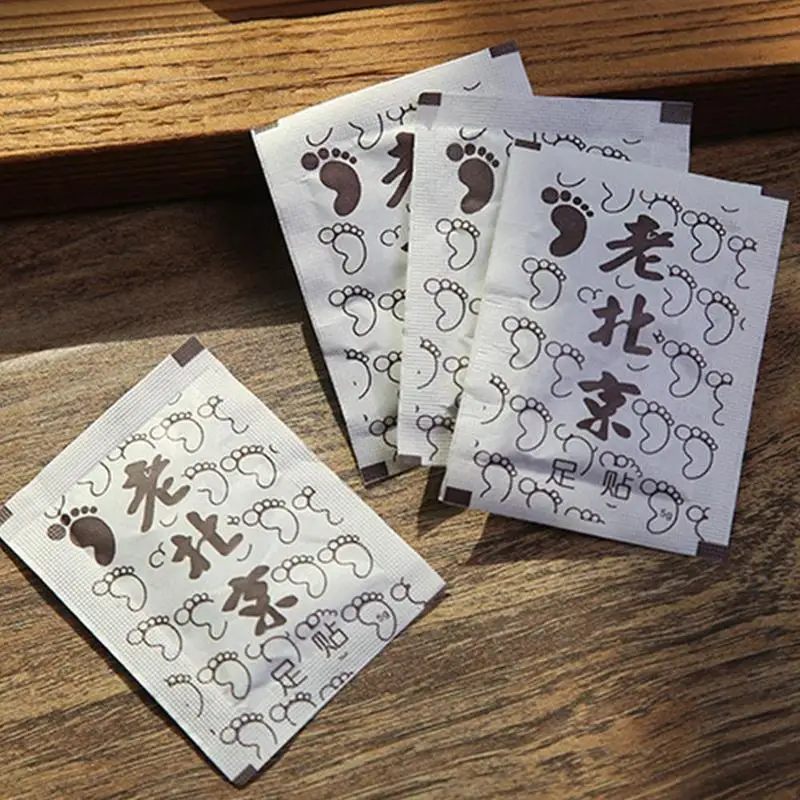 老
老北京
足贴
5g
老北京
足贴
5g